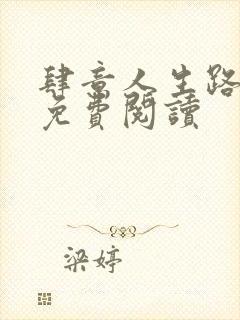 肆意人生路
免費閱讀
梁婷